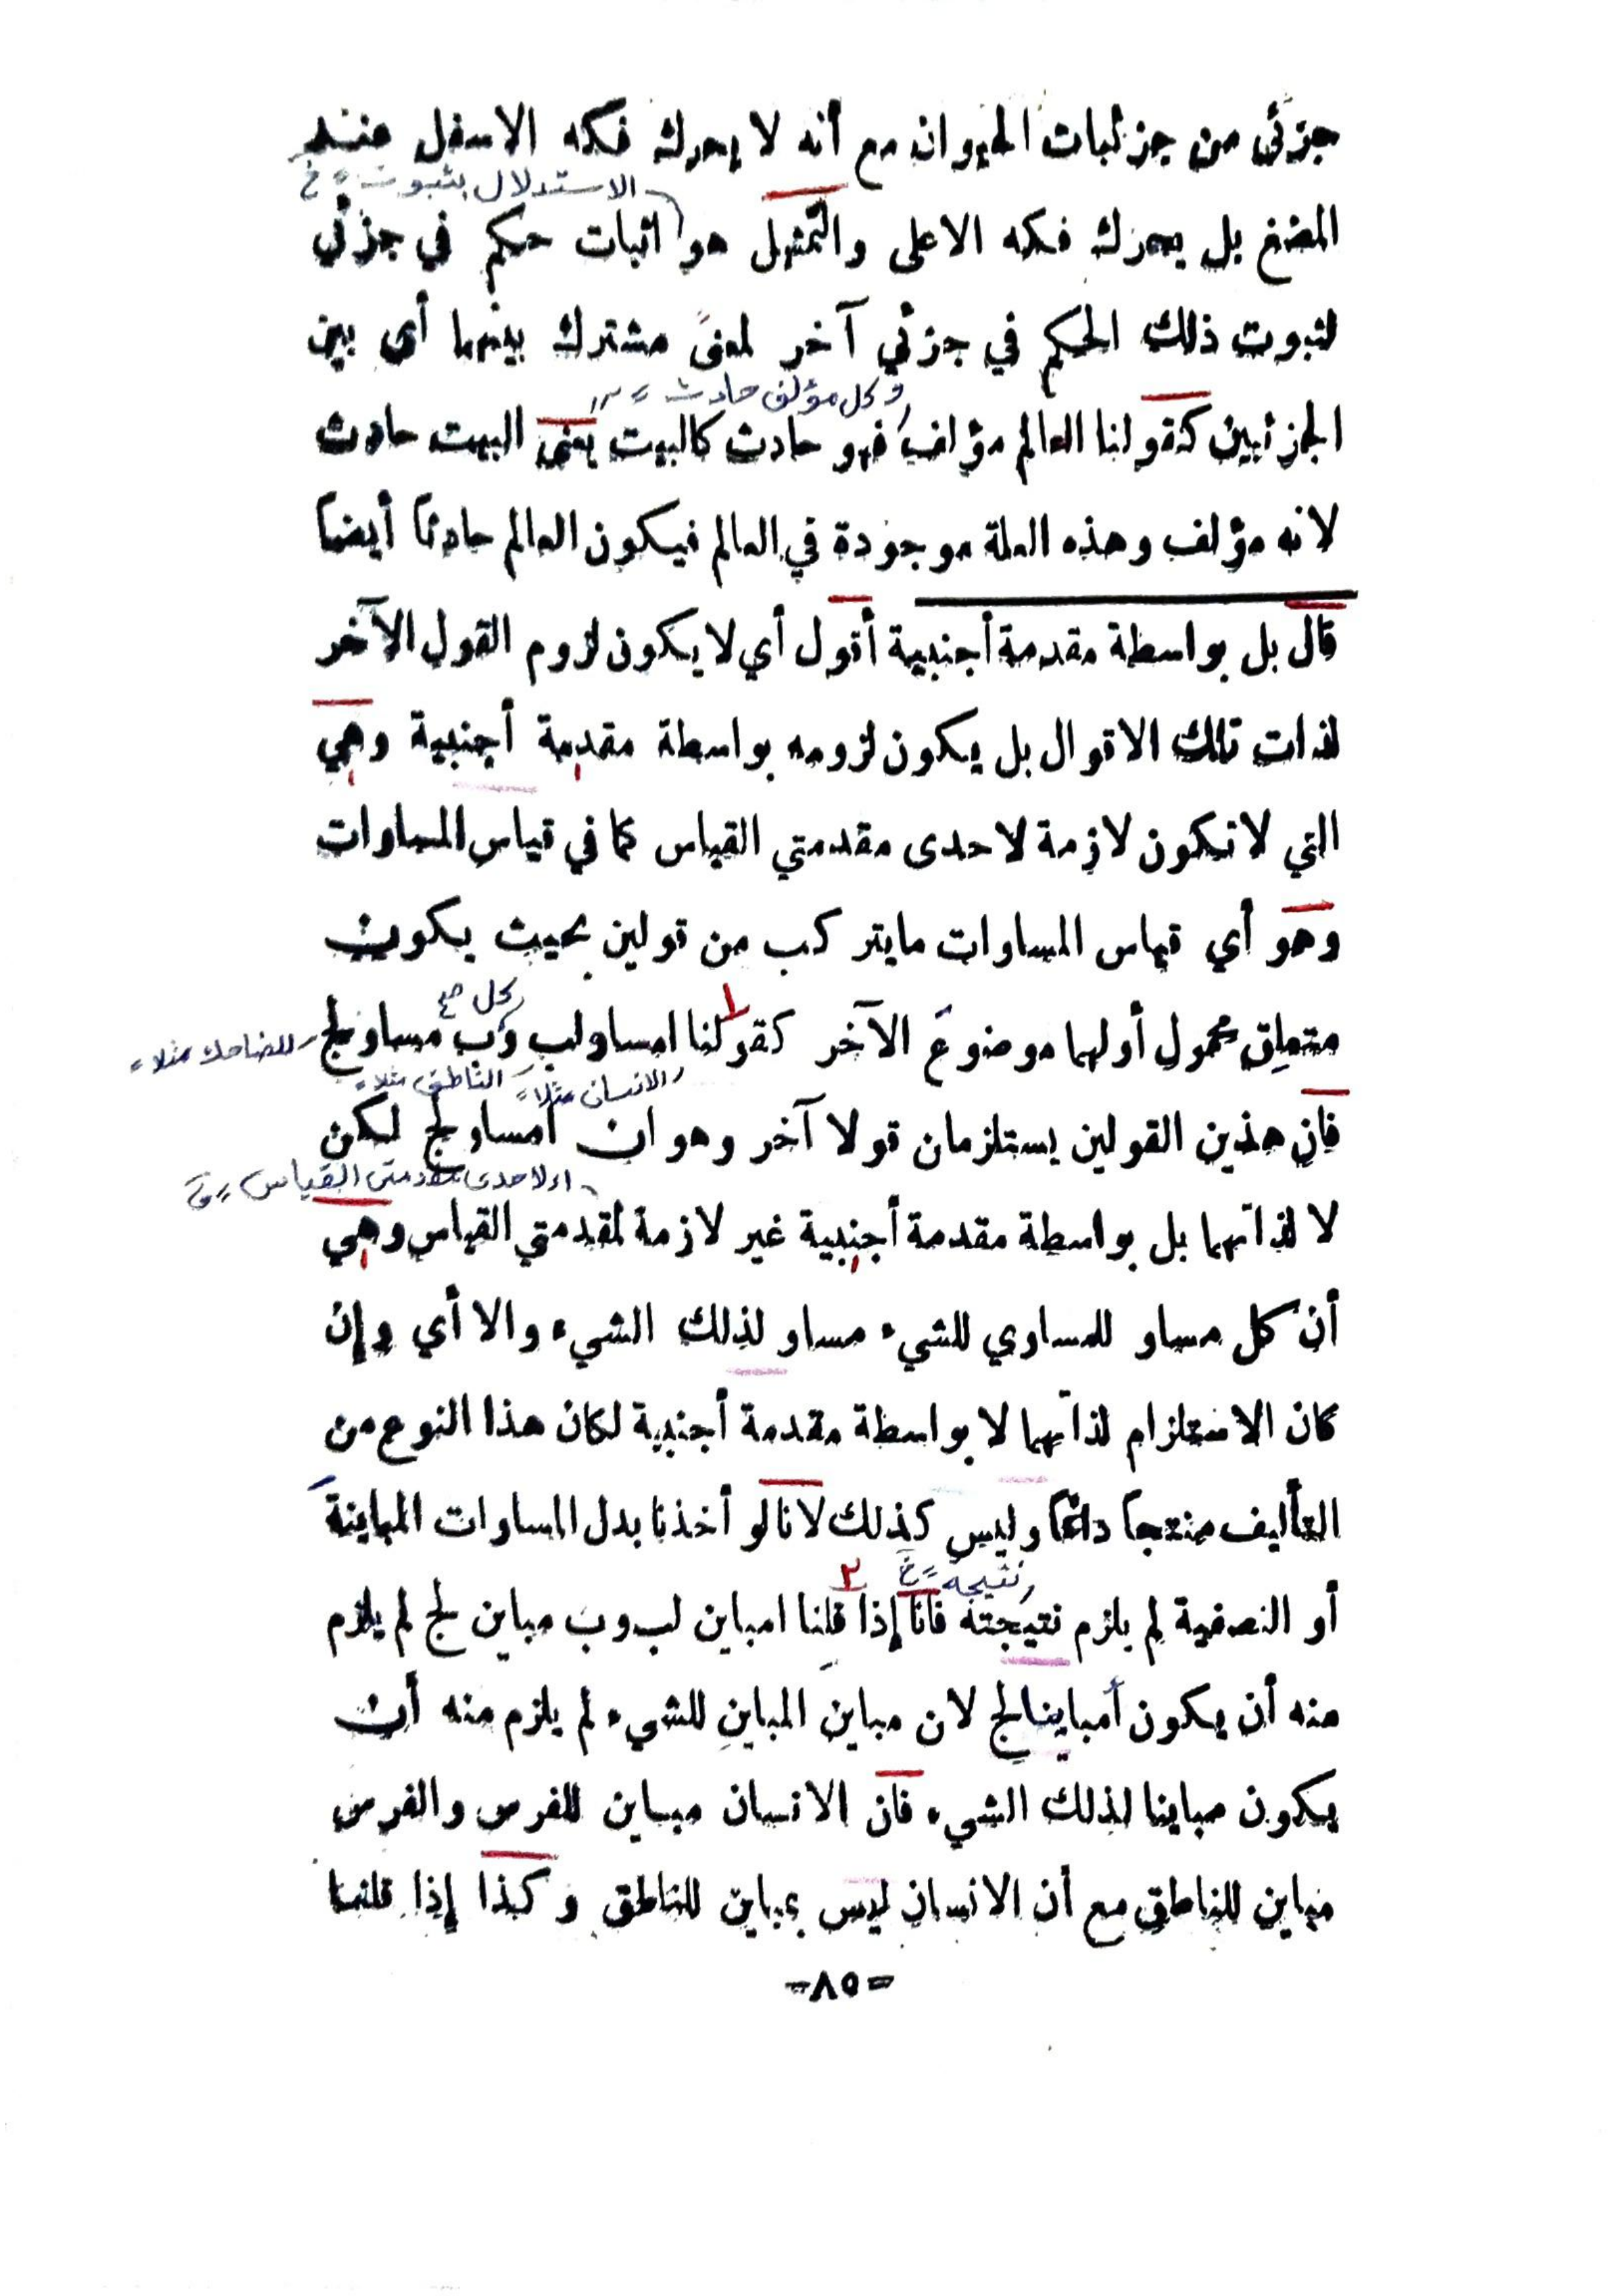 جزئي من جزئيات الحيوان مع أنه لا يحرك فكه الاسفل عند
الاستدلال بثبوت
المضغ بل يحرك فكه الاعلى والتمثيل هو اثبات حكم في جزئي
لثبوت ذلك الحكم في جزئي آخر لمعنى مشترك بينهما أي بين
وكل مؤلف حادث
الجزئيين كقولنا العالم مؤلف فهو حادث كالبيت يعنى البيت حادث
لانه مؤلف وهذه العلة موجودة في العالم فيكون العالم حادثاً أيضاً
قال بل بواسطة مقدمة أجنبية أقول أي لا يكون لزوم القول الآخر
لذات تلك الاقوال بل يكون لزومه بواسطة مقدمة أجنبية وهي
التي لا تكون لازمة لاحدى مقدمتي القياس كما في قياس المساوات
وهو أي قياس المساوات ما يتركب من قولين بحيث يكون
كل
متعلِق محمول أولهما موضوعَ الآخر كقولنا ا مساو لب وب مساو لج للضاحك مثلا
١
الانسان مثلا الناطق مثلا
فان هذين القولين يستلزمان قولا آخر وهو ان أ مساو لج لكن
لاحدى مقدمتى القياس
لا لذاتهما بل بواسطة مقدمة أجنبية غير لازمة لمقدمتي القياس وهي
أن كل مساو للمساوي للشيء مساو لذلك الشيء والا أي وإن
كان الاستلزام لذاتهما لا بواسطة مقدمة أجنبية لكان هذا النوع من
التأليف منتجاً دائماً وليس كذلك لانا لو أخذنا بدل المساوات المباينةَ
نتيجة
٢
أو النصفية لم يلزم نتيجته فانا إذا قلنا ا مباين لب وب مباين لج لم يلزم
منه أن يكون أ مباينا لج لان مباينَ المباينِ للشيء لم يلزم منه أن
يكون مباينا لذلك الشيء فان الانسان مباين للفرس والفرس
مباين للناطق مع أن الانسان ليس بمباين للناطق وكذا إذا قلنا
-٨٥-